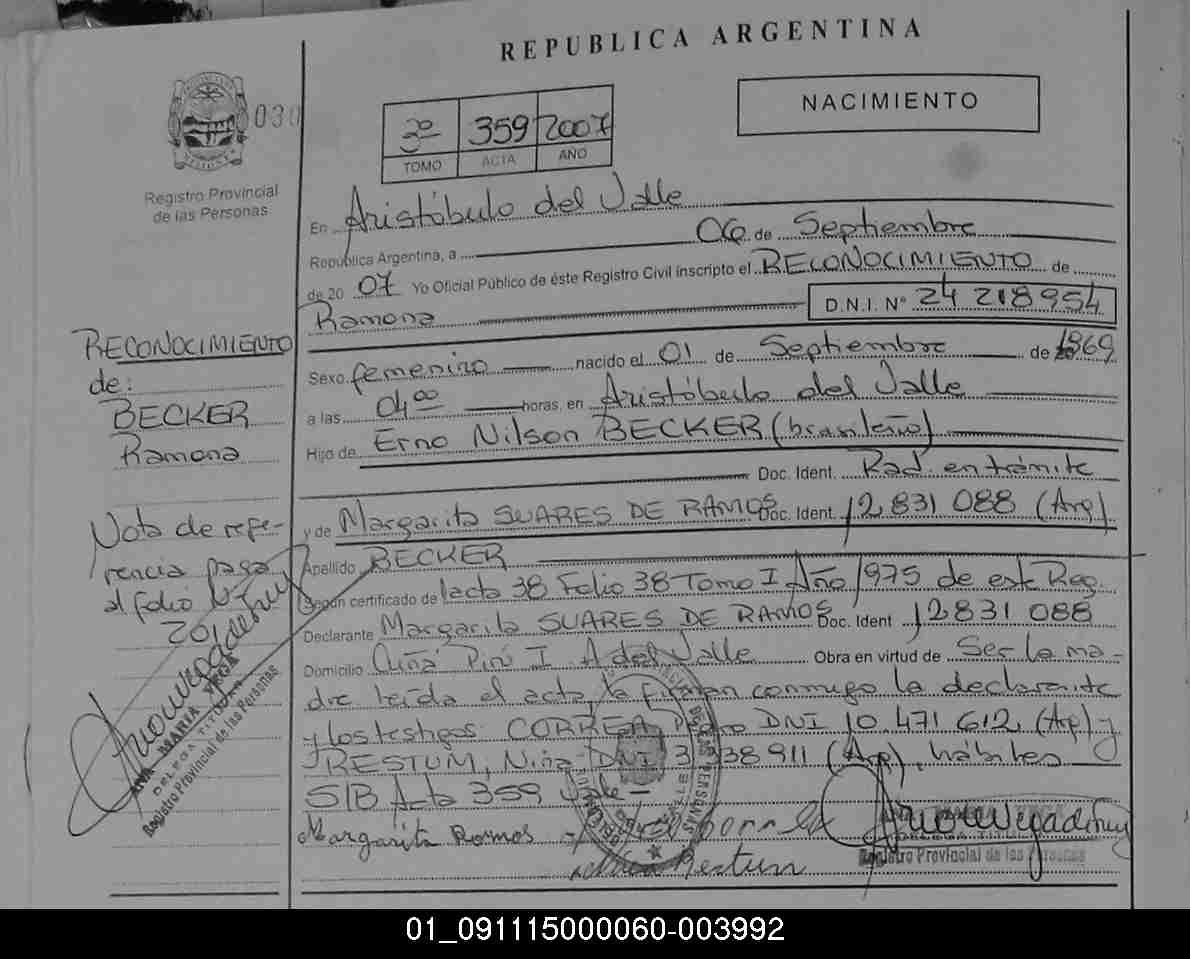 REPUBLICA ARGENTINA
030
3º 359 2007
TOMO ACTA AÑO
NACIMIENTO
Registro Provincial
de las Personas
En Aristóbulo del Valle
Republica Argentina, a 06 de Septiembre
de 20 07 Yo Oficial Público de éste Registro Civil inscripto el RECONOCIMIENTO de
Ramona D.N.I. Nº 24 218954
RECONOCIMIENTO
de:
BECKER
Ramona
Sexo femenino nacido el 01 de Septiembre de 1969
a las 04 00 horas, en Aristóbulo del Valle
Hijo de Erno Nilson BECKER (brasileño)
Doc. Ident. Rad. en trámite
y de Margarita SUARES DE RAMOS Doc. Ident. 12 831 088 (Arg)
Nota de refe-
rencia pasa
al folio Nº
201
Apellido BECKER
Según certificado de lacta 38 Folio 38 Tomo I Año 1975 de este Reg.
Declarante Margarita SUARES DE RAMOS Doc. Ident 12831 088
Domicilio Piru I A del Valle Obra en virtud de Ser la ma-
dre leida el acta la firman conmigo la declarante
y los testigos: CORREA DNI 10.471 612 (Arg) y
RESTUM, DNI (Arg), hábiles
S/B Acta 359 Vale -
Margarita Ramos
Restum
ANA MARIA VEGA
DELEGA TITULAR
Registro Provincial de las Personas
Registro Provincial de las Personas
01_091115000060-003992